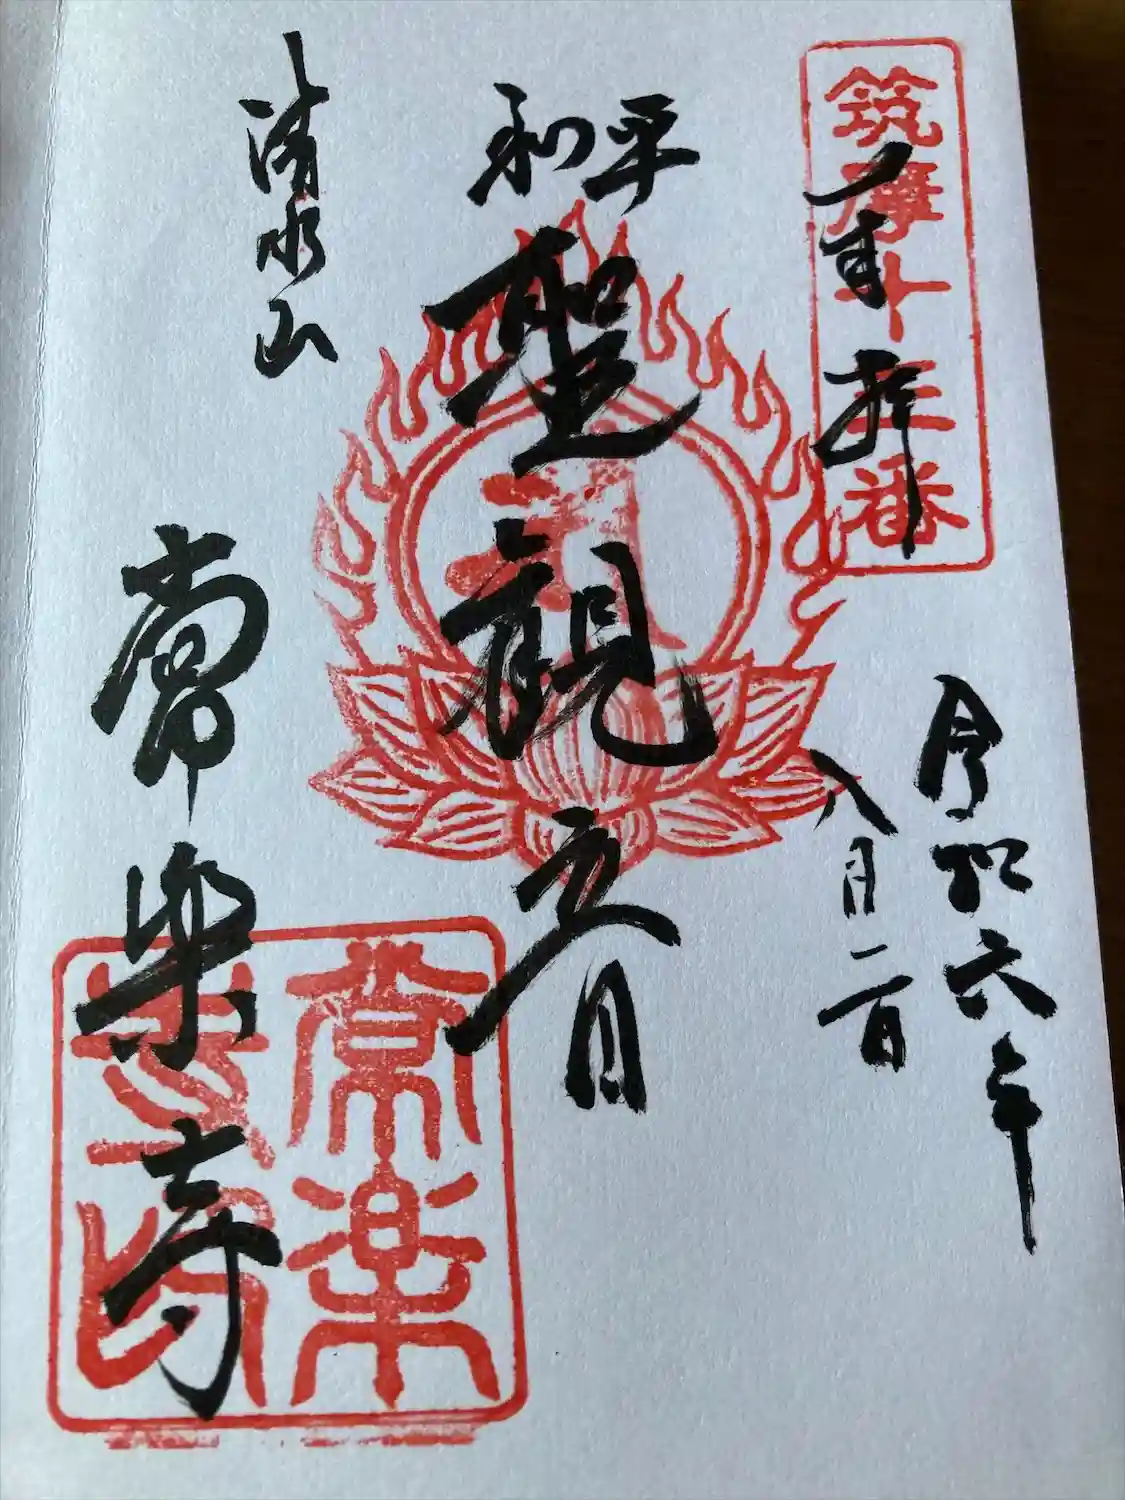 筑摩十三番
奉拝
令和六年
八月二日
平和
聖観音
清水山
常楽寺
常楽寺印